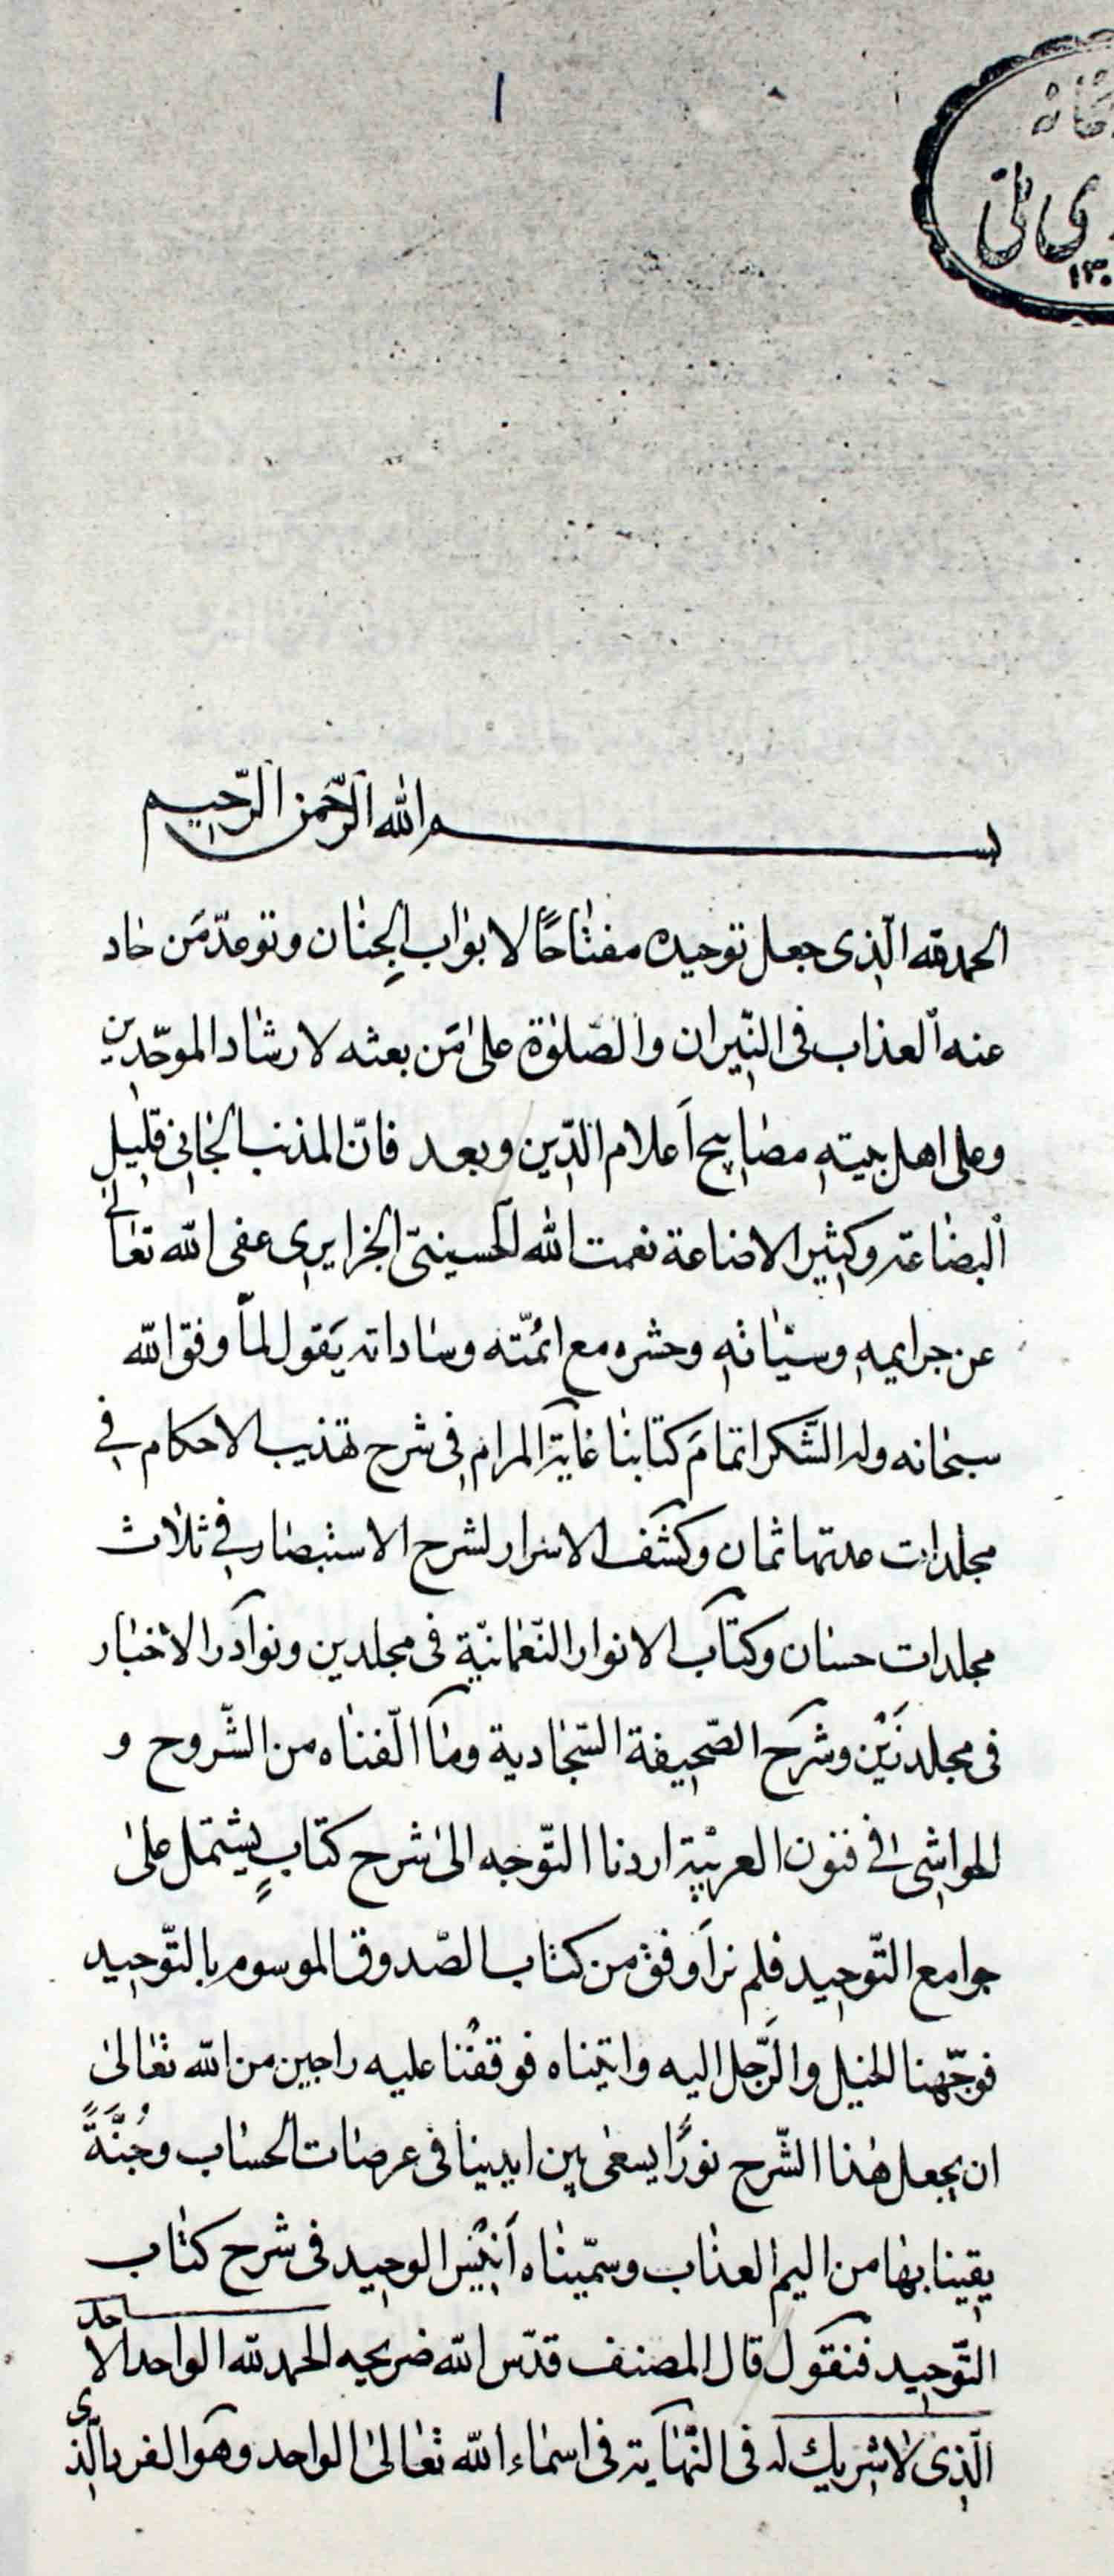 ١
ى ملى
١٣٠
بسم الله الرّحمن الرّحيم
الحمد لله الّذى جعل توحيده مفتاحًا لابواب الجِنان وتوعّد مَن حاد
عنه العذاب فى النّيران والصّلوٰة علىٰ مَن بعثه لارشاد الموحّدين
وعلى اهل بيته مصابيح اَعلام الدّين وبعد فانّ المذنب الجانى قليل
البضاعة وكثير الاضاعة نعمت الله الحسينىّ الجزايرى عفى الله تعالىٰ
عن جرايمه وسيّاته وحشره مع ائمّته وساداته يَقول لمّا وفق الله
سبحانه وله الشّكر اتمامَ كتابنا غاية المرام فى شرح تهذيب الاحكام فى
مجلدات عدتها ثمان وكشف الاسرار لشرح الاستبصار فى ثلاث
مجلدات حسان وكتاب الانوار النّعمانيّة فى مجلدين ونوادر الاخبار
فى مجلدَيْن وشرح الصّحيفة السّجادية وما الّفناه من الشّروح و
الحواشى فى فنون العربيّة اردنا التّوجه الىٰ شرح كتابٍ يشتمل علىٰ
جوامع التّوحيد فلم نر اَوفق من كتاب الصّدوق الموسوم بالتّوحيد
فوجّهنا الخيل والرَّجل اليه واتيناه فوقفْنا عليه راجين من الله تعالىٰ
ان يجعل هٰذا الشّرح نورًا يسعىٰ بين ايدينا فى عرصات الحساب وجُنَّةً
يقينا بها من اليم العذاب وسمّيناه اَنيْس الوحيد فى شرح كتاب
التّوحيد فنقول قال المصنف قدّس الله ضريحه الحمد لله الواحد الاحد
الّذى لا شريك له فى النّهاية فى اسماء الله تعالىٰ الواحد وهو الفرد الّذى